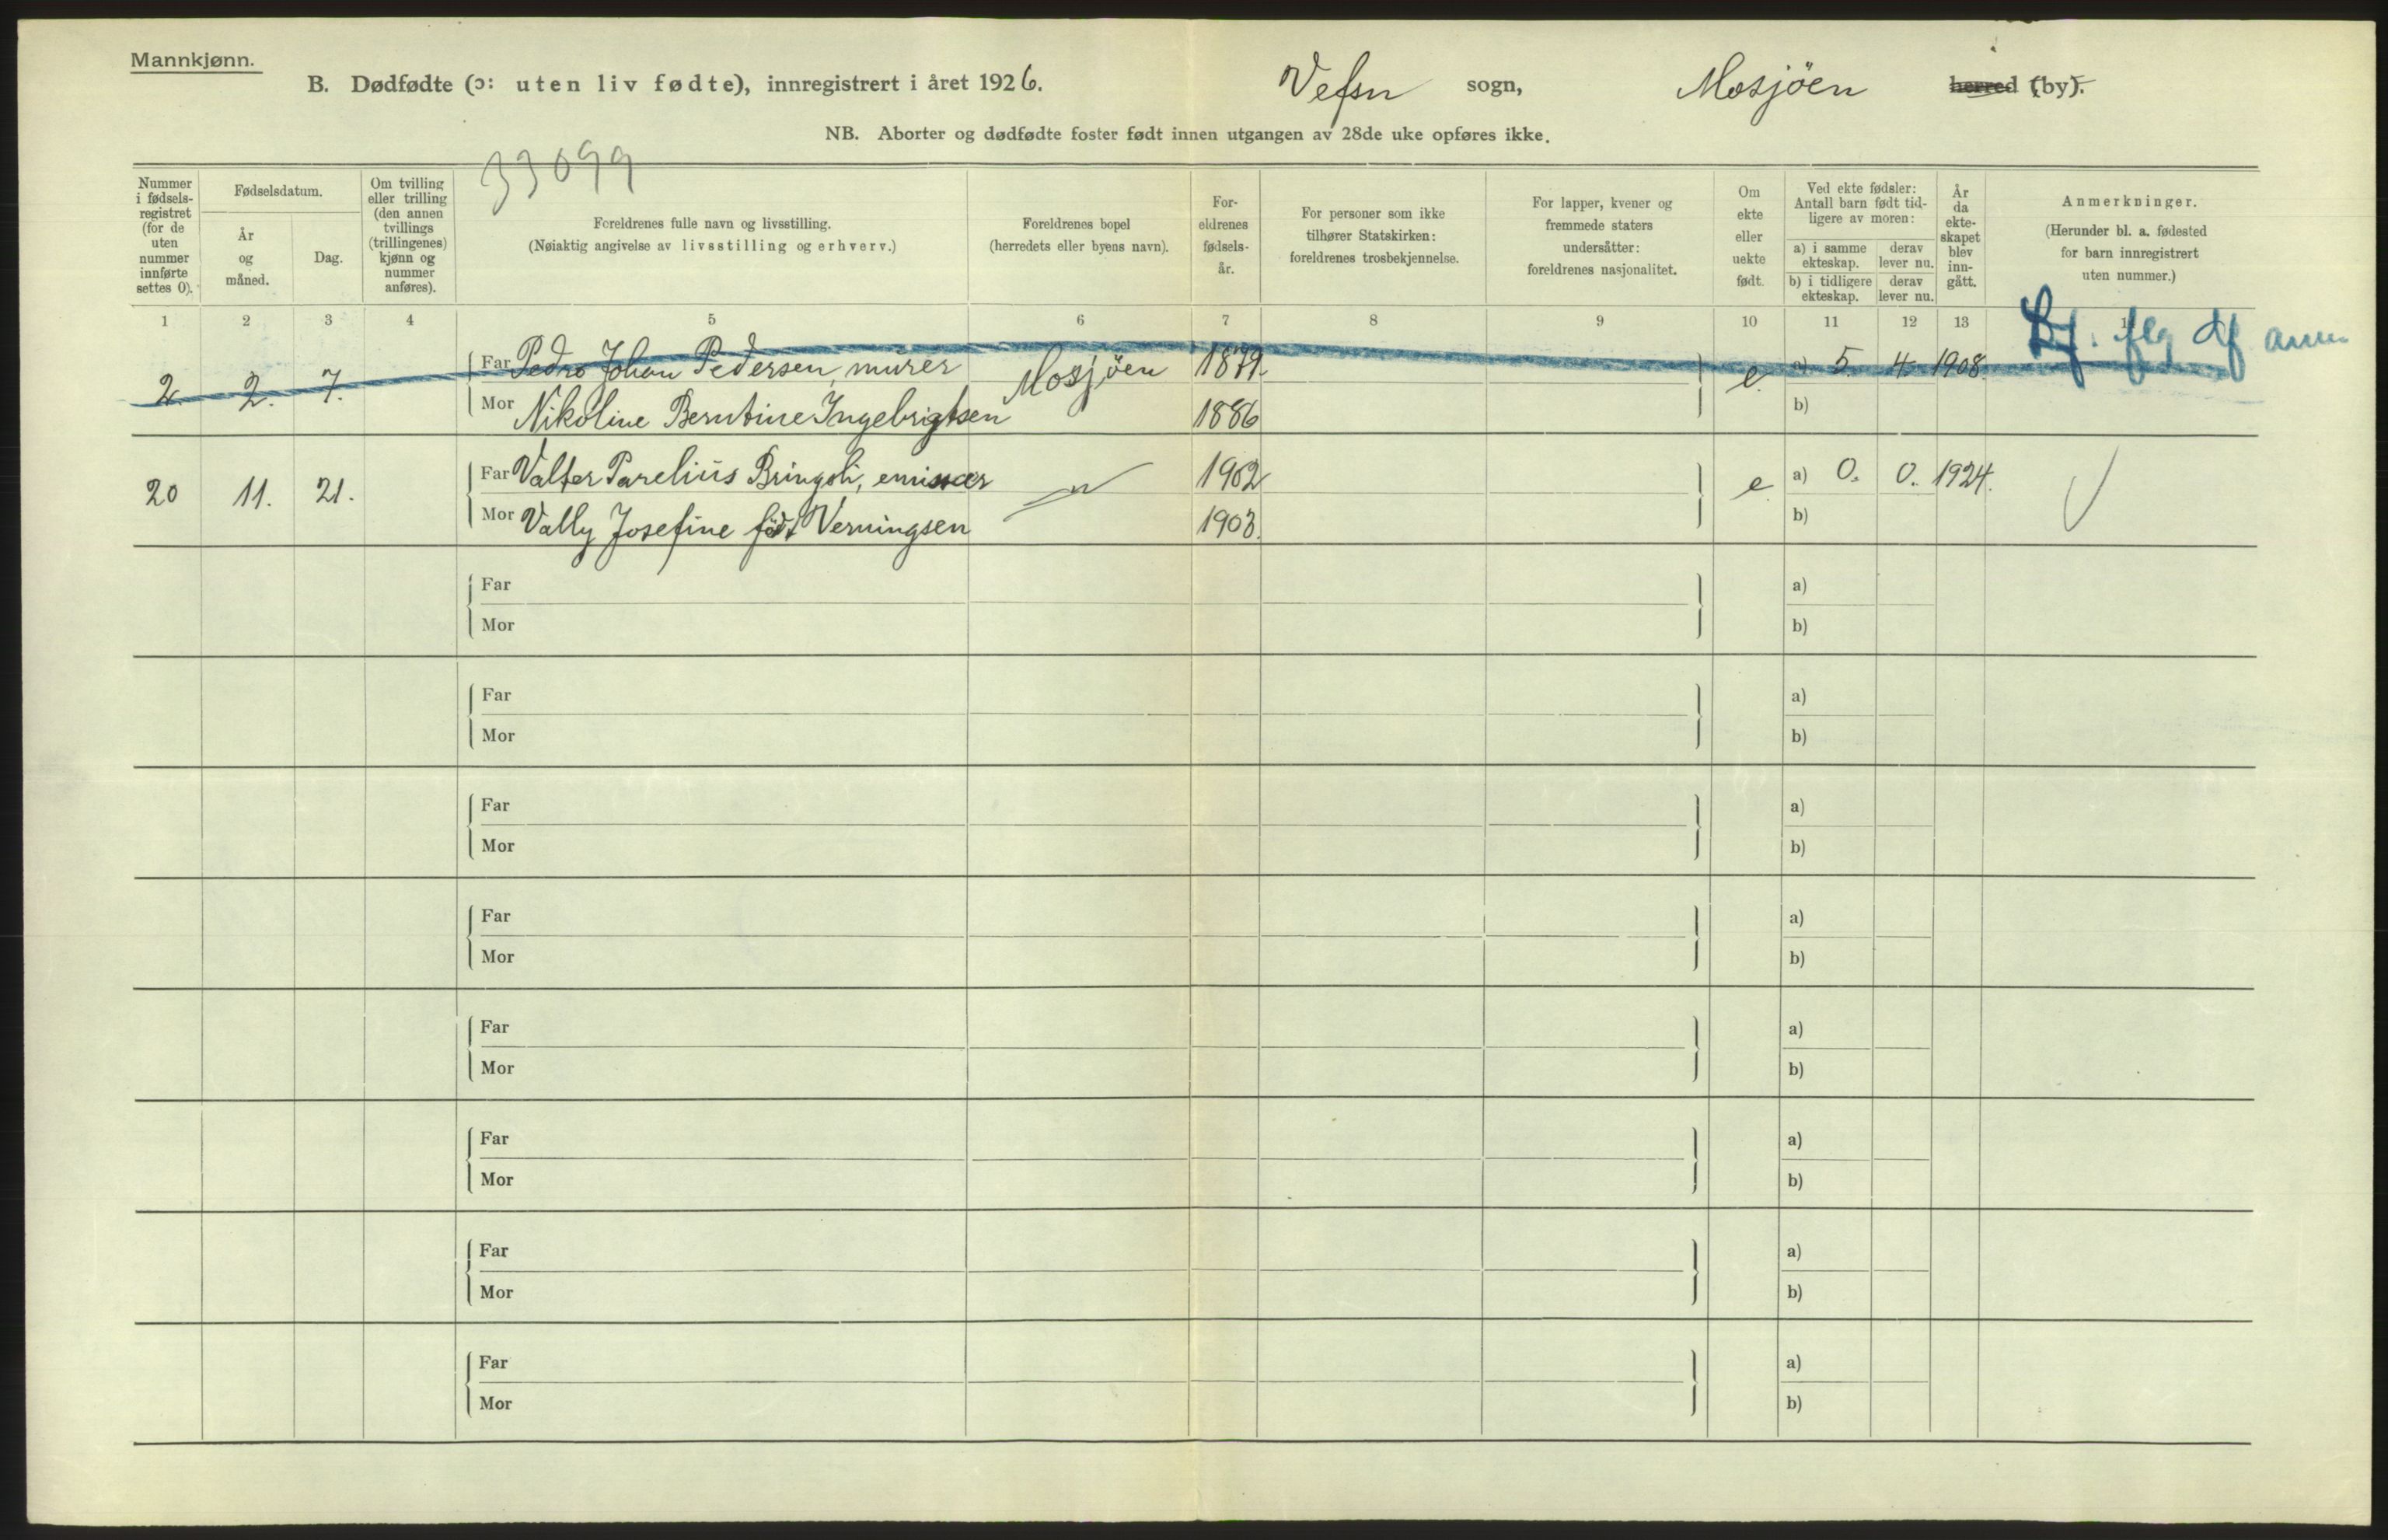 Mannkjønn.
B. Dødfødte (ɔ: uten liv fødte), innregistrert i året 1926. Vefsn sogn, Mosjöen herred (by).
NB. Aborter og dødfødte foster født innen utgangen av 28de uke opføres ikke.
33099
Nummer i fødsels-registret (for de uten nummer innførte settes 0).
Fødselsdatum.
År og måned.
Dag.
Om tvilling eller trilling (den annen tvillings (trillingenes) kjønn og nummer anføres).
Foreldrenes fulle navn og livsstilling.
(Nøiaktig angivelse av livsstilling og erhverv.)
Foreldrenes bopel
(herredets eller byens navn).
For-eldrenes fødsels-år.
For personer som ikke tilhører Statskirken: foreldrenes trosbekjennelse.
For lapper, kvener og fremmede staters undersåtter: foreldrenes nasjonalitet.
Om ekte eller uekte født.
Ved ekte fødsler: Antall barn født tid-ligere av moren:
a) i samme ekteskap. derav lever nu.
b) i tidligere ekteskap. derav lever nu.
År da ekte-skapet blev inn-gått.
Anmerkninger.
(Herunder bl. a. fødested for barn innregistrert uten nummer.)
1 2 3 4 5 6 7 8 9 10 11 12 13
2. 2. 7. Far Pedro Johan Pedersen, murer Mosjöen 1879. e. a) 5. 4. 1908.
Mor Nikoline Berntine Ingebrigtsen 1886 b)
20 11. 21. Far Valter Parelius Bringsli, emissær 1902 e. a) 0. 0. 1924.
Mor Vally Josefine født Verningsen 1903. b)
Far a)
Mor b)
Far a)
Mor b)
Far a)
Mor b)
Far a)
Mor b)
Far a)
Mor b)
Far a)
Mor b)
Far a)
Mor b)
Far a)
Mor b)